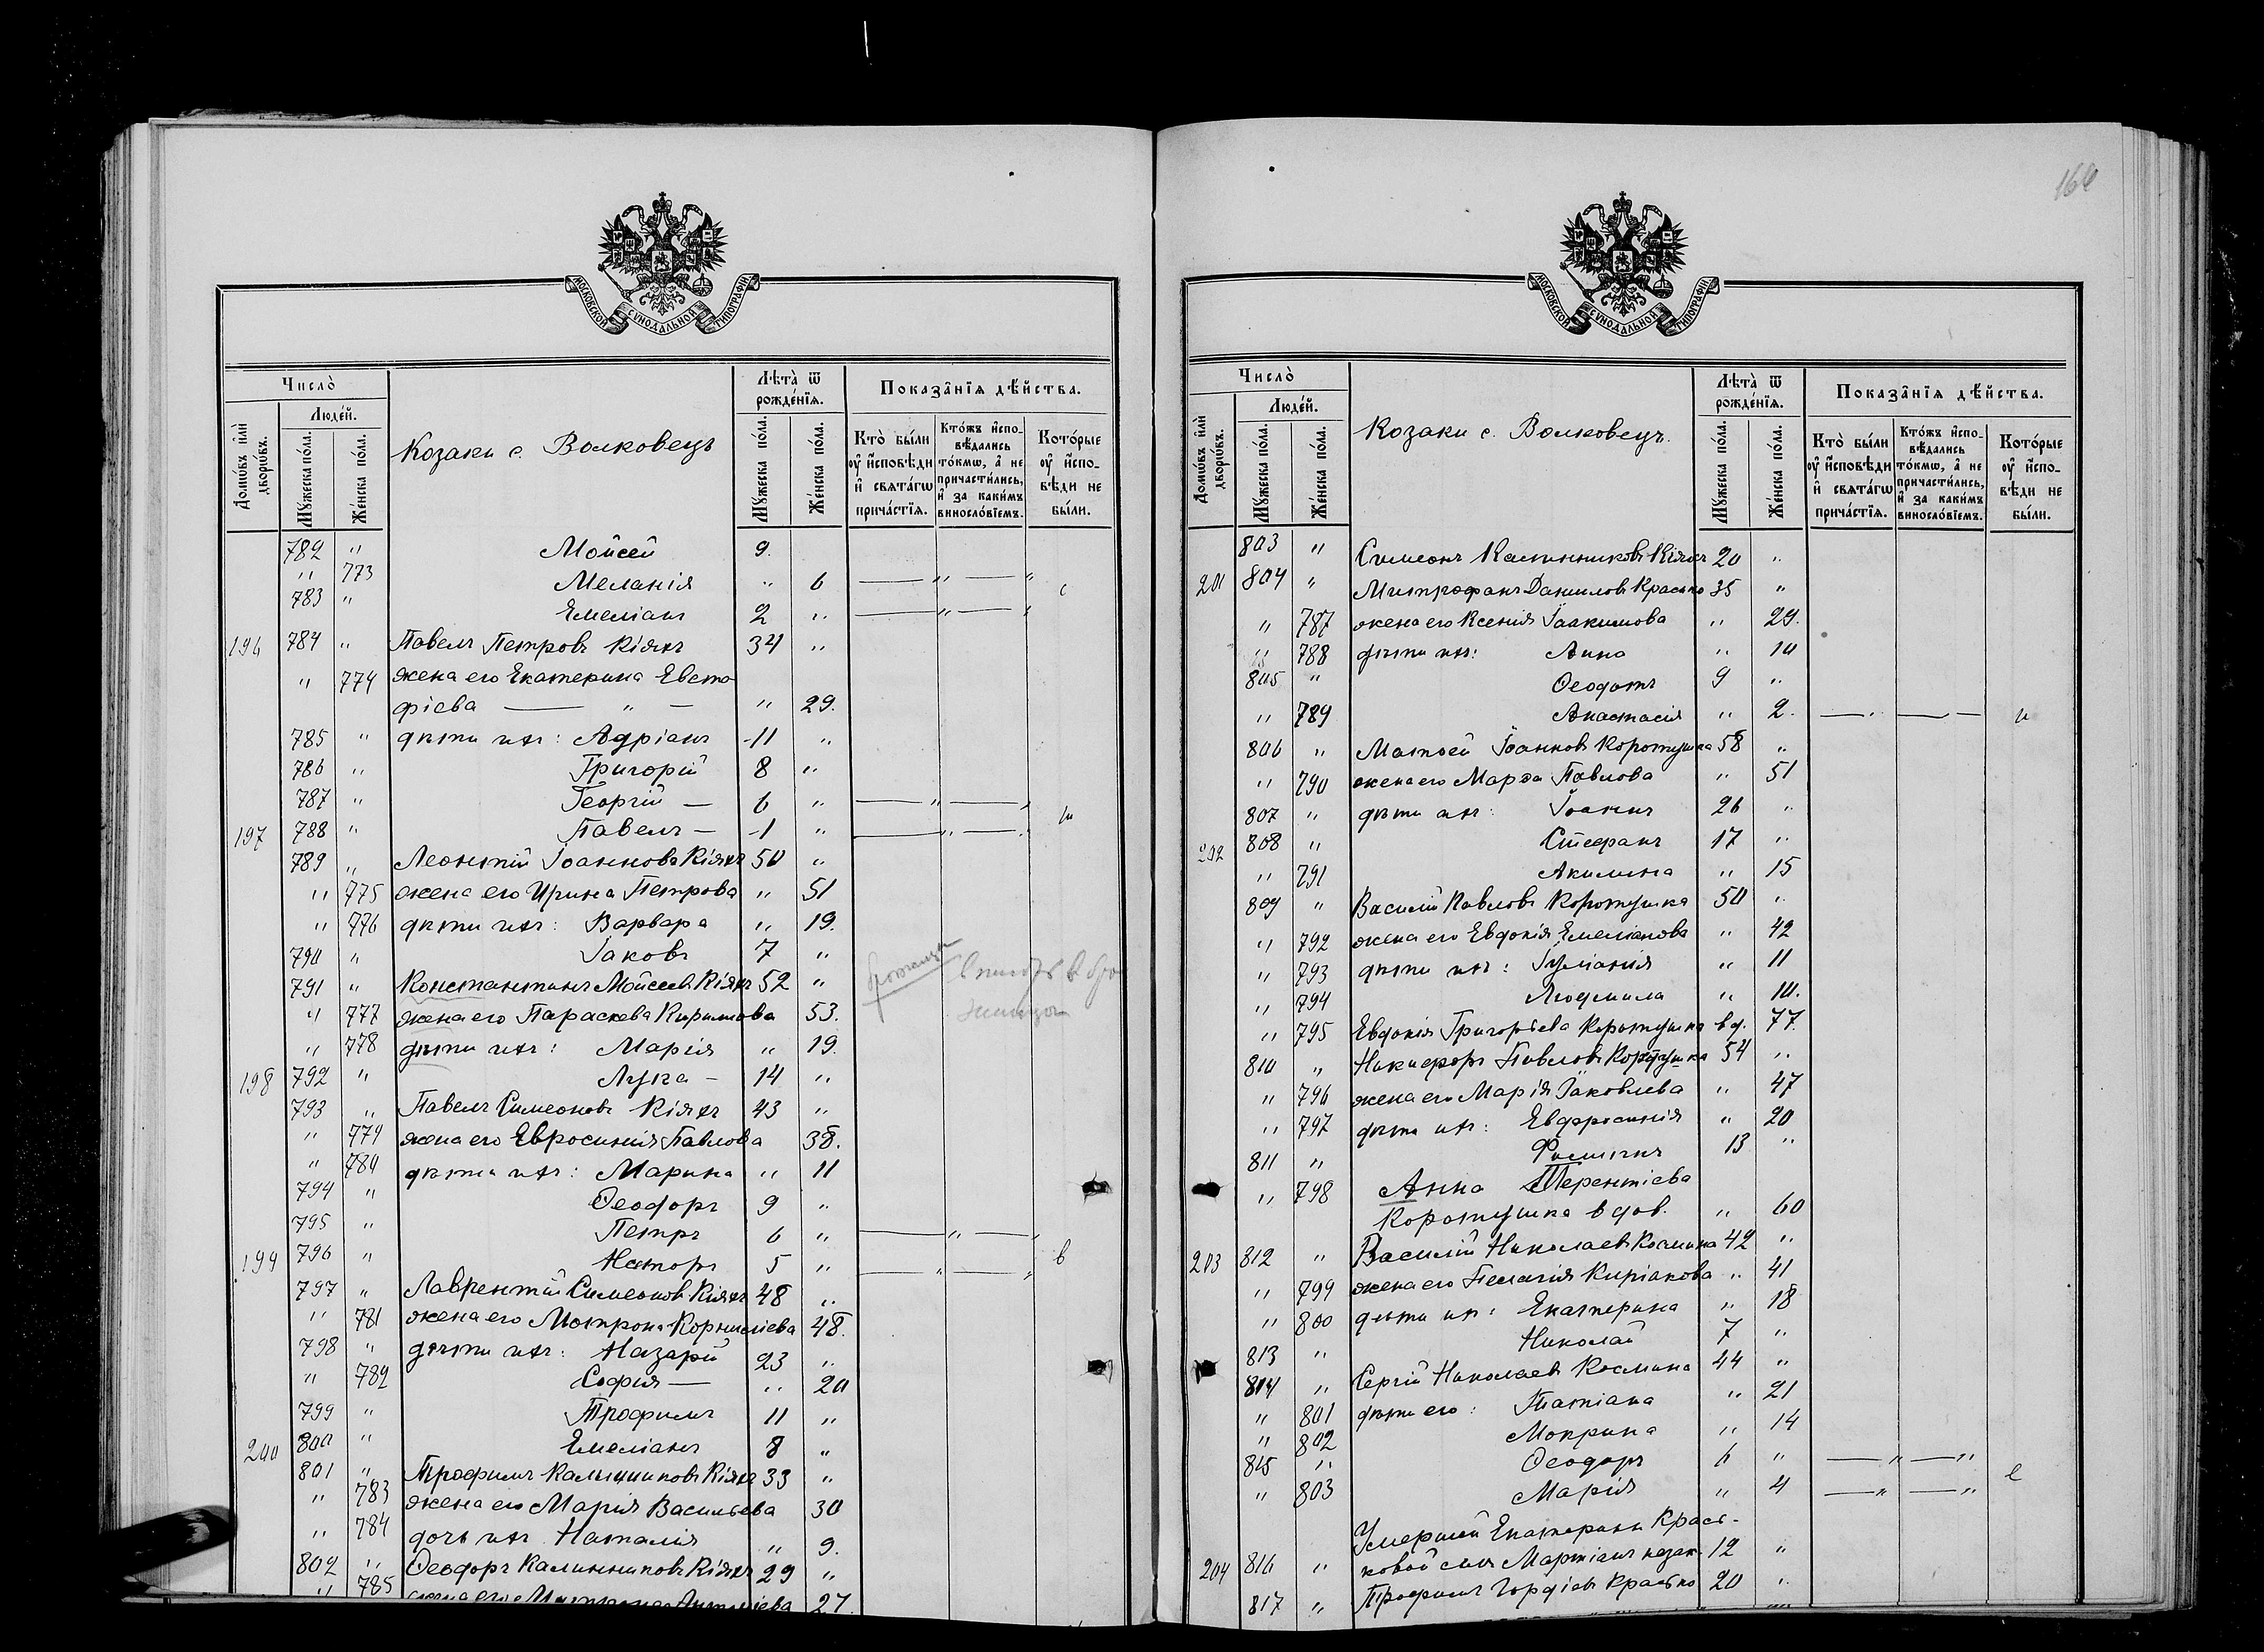 МОСКОВСКОЙ СУНОДАЛЬНОЙ ТИПОГРАФІИ.
Число̀
Людéй.
Домѡ́въ и҆лѝ дворѡ́въ.
Мꙋ́жеска по́ла.
Же́нска по́ла.
Козаки с. Волковецъ
Лѣ́та ѿ рожде́нїѧ.
Мꙋ́жеска по́ла.
Же́нска по́ла.
Показа̑нїѧ дѣ́йства.
Кто̀ бы́ли оу҆ и҆сповѣ́ди и҆ свѧта́гѡ прича́стїѧ.
Кто́жъ и҆спо-вѣ́дались то́кмѡ, а҆ не причасти́лись, и҆ за каки́мъ винослóвїемъ.
Кото́рые оу҆ и҆спо-вѣ́ди не бы́ли.
782 " Мойсей 9.
" 773 Меланія " 6 — " — "
783 " Емеліанъ 2 " — " — "
196 784 " Павелъ Петровъ Кіяхъ 34 "
" 774 жена его Екатерина Евсто-
фіева — " — " 29.
785 " дѣти ихъ: Адріанъ 11 "
786 " Григорій 8 "
787 " Георгій — 6 " — " — "
197 788 " Павелъ — 1 " — " — "
789 " Леонтій Іоанновъ Кіяхъ 50 "
" 775 жена его Ирина Петрова " 51
" 776 дѣти ихъ: Варвара " 19.
790 " Іаковъ 7 "
791 " Константинъ Мойсеевъ Кіяхъ 52 "
" 777 жена его Параскева Кирилова 53.
" 778 дѣти ихъ: Марія " 19.
198 792 " Лука — 14 "
793 " Павелъ Симеоновъ Кіяхъ 43 "
" 779 жена его Евросинія Павлова 38.
" 780 дѣти ихъ: Марина " 11
794 " Ѳеодоръ 9 "
795 " Петръ 6 " — " — "
199 796 " Несторъ 5 " — " — "
797 " Лаврентій Симеоновъ Кіяхъ 48 "
" 781 жена его Мотрона Корнилиева 48.
798 " дѣти ихъ: Назарій 23 "
" 782 Софія — " 20
799 " Трофимъ 11 "
200 800 " Емеліанъ 8 "
801 " Трофимъ Калинниковъ Кіяхъ 33 "
" 783 жена его Марія Васильева 30
" 784 дочь ихъ Наталія " 9.
802 " Ѳеодоръ Калинниковъ Кіяхъ 29 "
" 785 жена его 27.
МОСКОВСКОЙ СУНОДАЛЬНОЙ ТИПОГРАФІИ.
Число̀
Людéй.
Домѡ́въ и҆лѝ дворѡ́въ.
Мꙋ́жеска по́ла.
Же́нска по́ла.
Козаки с. Волковецъ.
Лѣ́та ѿ рожде́нїѧ.
Мꙋ́жеска по́ла.
Же́нска по́ла.
Показа̑нїѧ дѣ́йства.
Кто̀ бы́ли оу҆ и҆сповѣ́ди и҆ свѧта́гѡ прича́стїѧ.
Кто́жъ и҆спо-вѣ́дались то́кмѡ, а҆ не причасти́лись, и҆ за каки́мъ винослóвїемъ.
Кото́рые оу҆ и҆спо-вѣ́ди не бы́ли.
803 " Симеонъ Калинниковъ Кіяхъ 20 "
201 804 " Митрофанъ Даниловъ Красько 35 "
" 787 жена его Ксенія Іоакимова " 29.
" 788 дѣти ихъ: Анна " 10
805 " Ѳеодотъ 9 "
" 789 Анастасія " 2. — " — —
806 " Матѳей Іоанновъ Коротушка 58 "
" 790 жена его Марѳа Павлова " 51
807 " дѣти ихъ: Іоаннъ 26 "
202 808 " Стефанъ 17 "
" 791 Акилина " 15
809 " Василій Павловъ Коротушка 50 "
" 792 жена его Евдокія Емеліанова " 42
" 793 дѣти ихъ: Іуліанія " 11
" 794 Людмила " 10.
" 795 Евдокія Григорьева Коротушка вд. 77.
810 " Никифоръ Павловъ Коротушка 54 "
" 796 жена его Марія Іаковлева " 47
" 797 дѣти ихъ: Евфросинія " 20
811 " 13 "
" 798 Анна Терентіева
Коротушка вдов. " 60
203 812 " Василій Николаевъ Космина 42 "
" 799 жена его Пелагія Киріакова " 41
" 800 дѣти ихъ: Екатерина " 18
813 " Николай 7 "
814 " Сергій Николаевъ Космина 44 "
" 801 дѣти его: Татіана " 21
" 802 Мокрина " 14
815 " Ѳеодоръ 6 " — " — "
" 803 Марія " 4 — " — "
Умершей Екатерины Крась-
204 816 " ковой сынъ Мартіанъ казак. 12 "
817 " Трофимъ Гордіевъ Красько 20 "